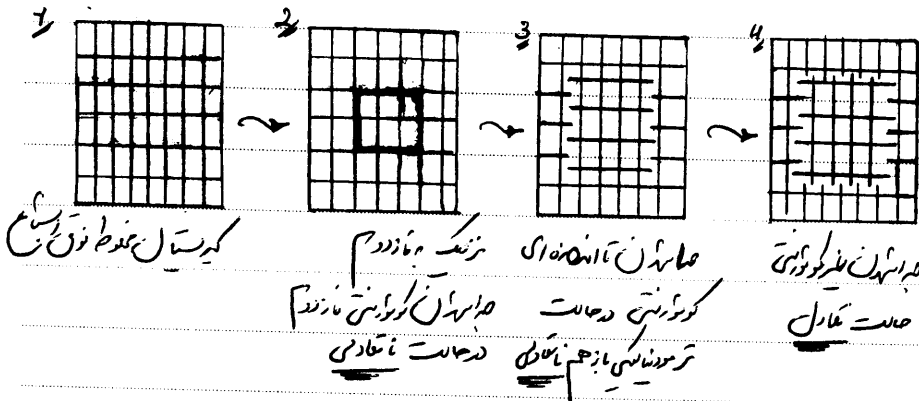 1
2
3
4
کریستال مخلوط فوق اشباع
نزدیک به فاز دوم
جدا شدن کوئرانتی فاز دوم
در حالت نا تعادلی
جدا شدن تا اندازه‌ای
کوئرانتی در حالت
ترمودینامیکی باز هم نا تعادلی
جدا شدن غیر کوئرانتی
حالت تعادل